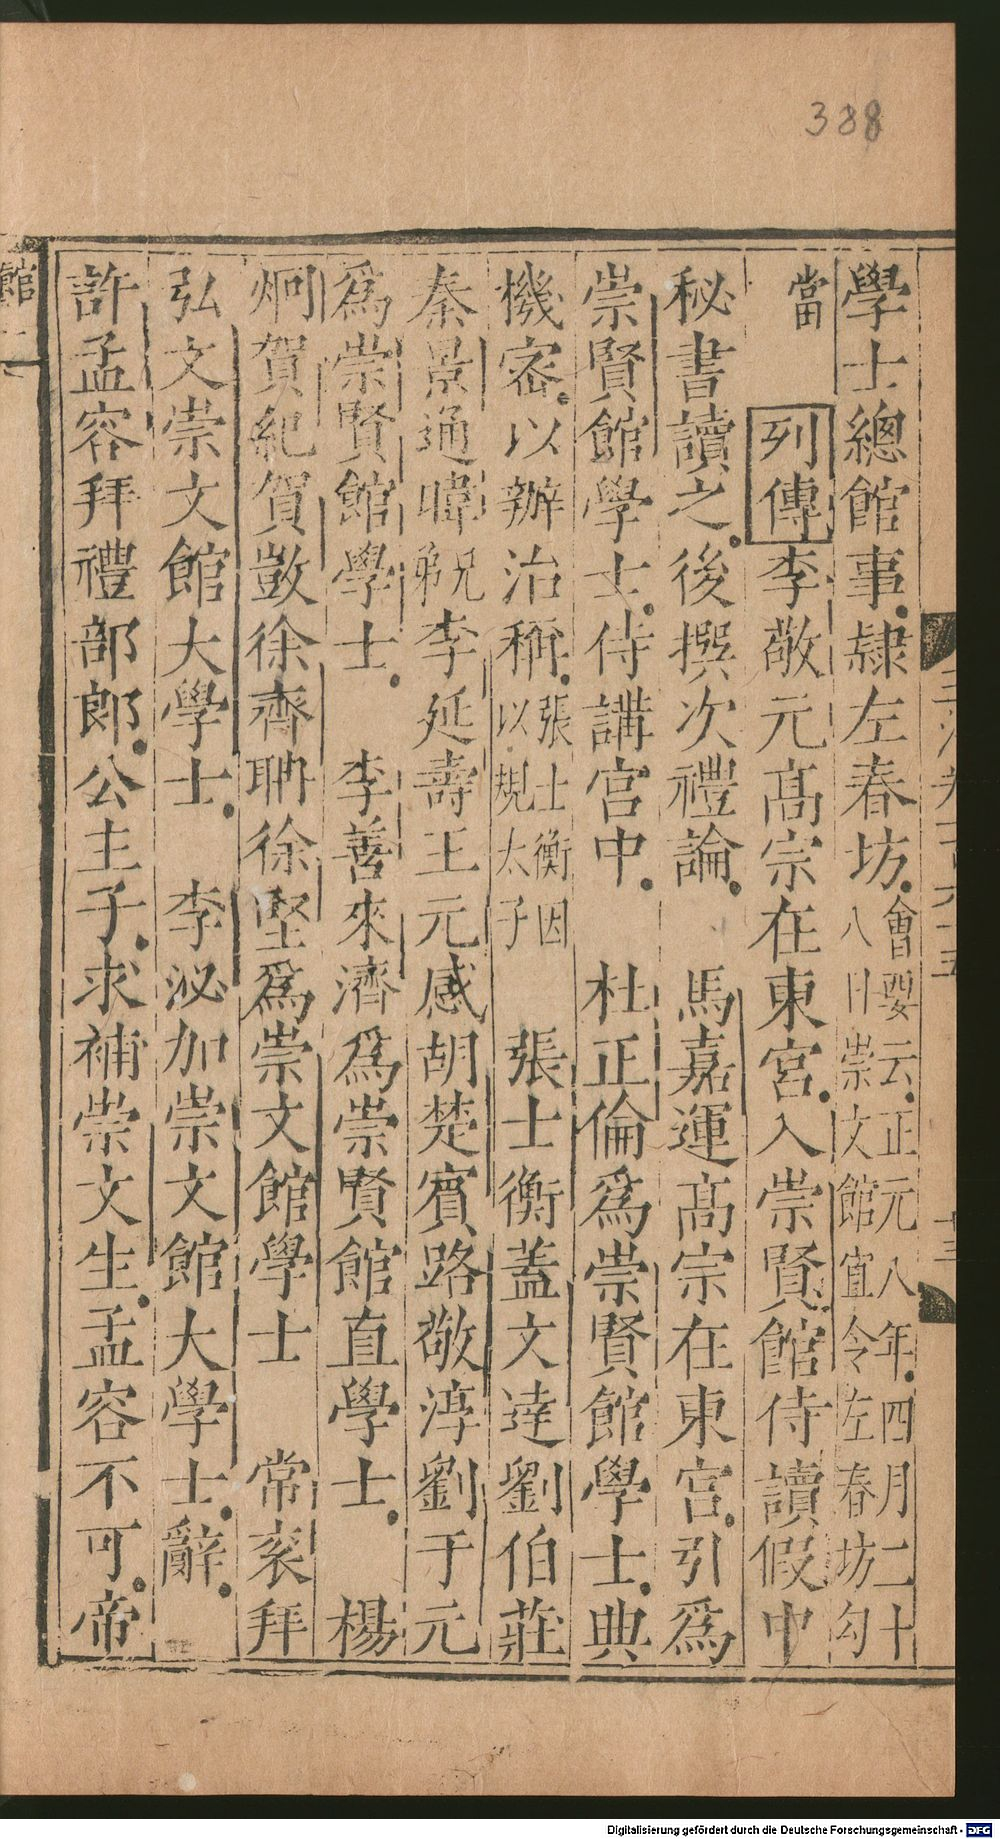 388
學士總館事隷左春坊會要云正元八年四月二十
八日崇文館宜令左春坊勾
當
列傳李敬元高宗在東宮入崇賢館侍讀假中
秘書讀之後撰次禮論　馬嘉運高宗在東宮引爲
崇賢館學士侍講宮中　杜正倫爲崇賢館學士典
機密以辦治稱張士衡因
以規太子　張士衡蓋文達劉伯莊
秦景通暐兄弟李延壽王元感胡楚賓路敬淳劉于元
爲崇賢館學士　李善來濟爲崇賢館直學士　楊
炯賀紀賀敳徐齊聃徐堅爲崇文館學士　常衮拜
弘文崇文館大學士　李泌加崇文館大學士辭
許孟容拜禮部郎公主子求補崇文生孟容不可帝
館
Digitalisierung gefördert durch die Deutsche Forschungsgemeinschaft - DFG